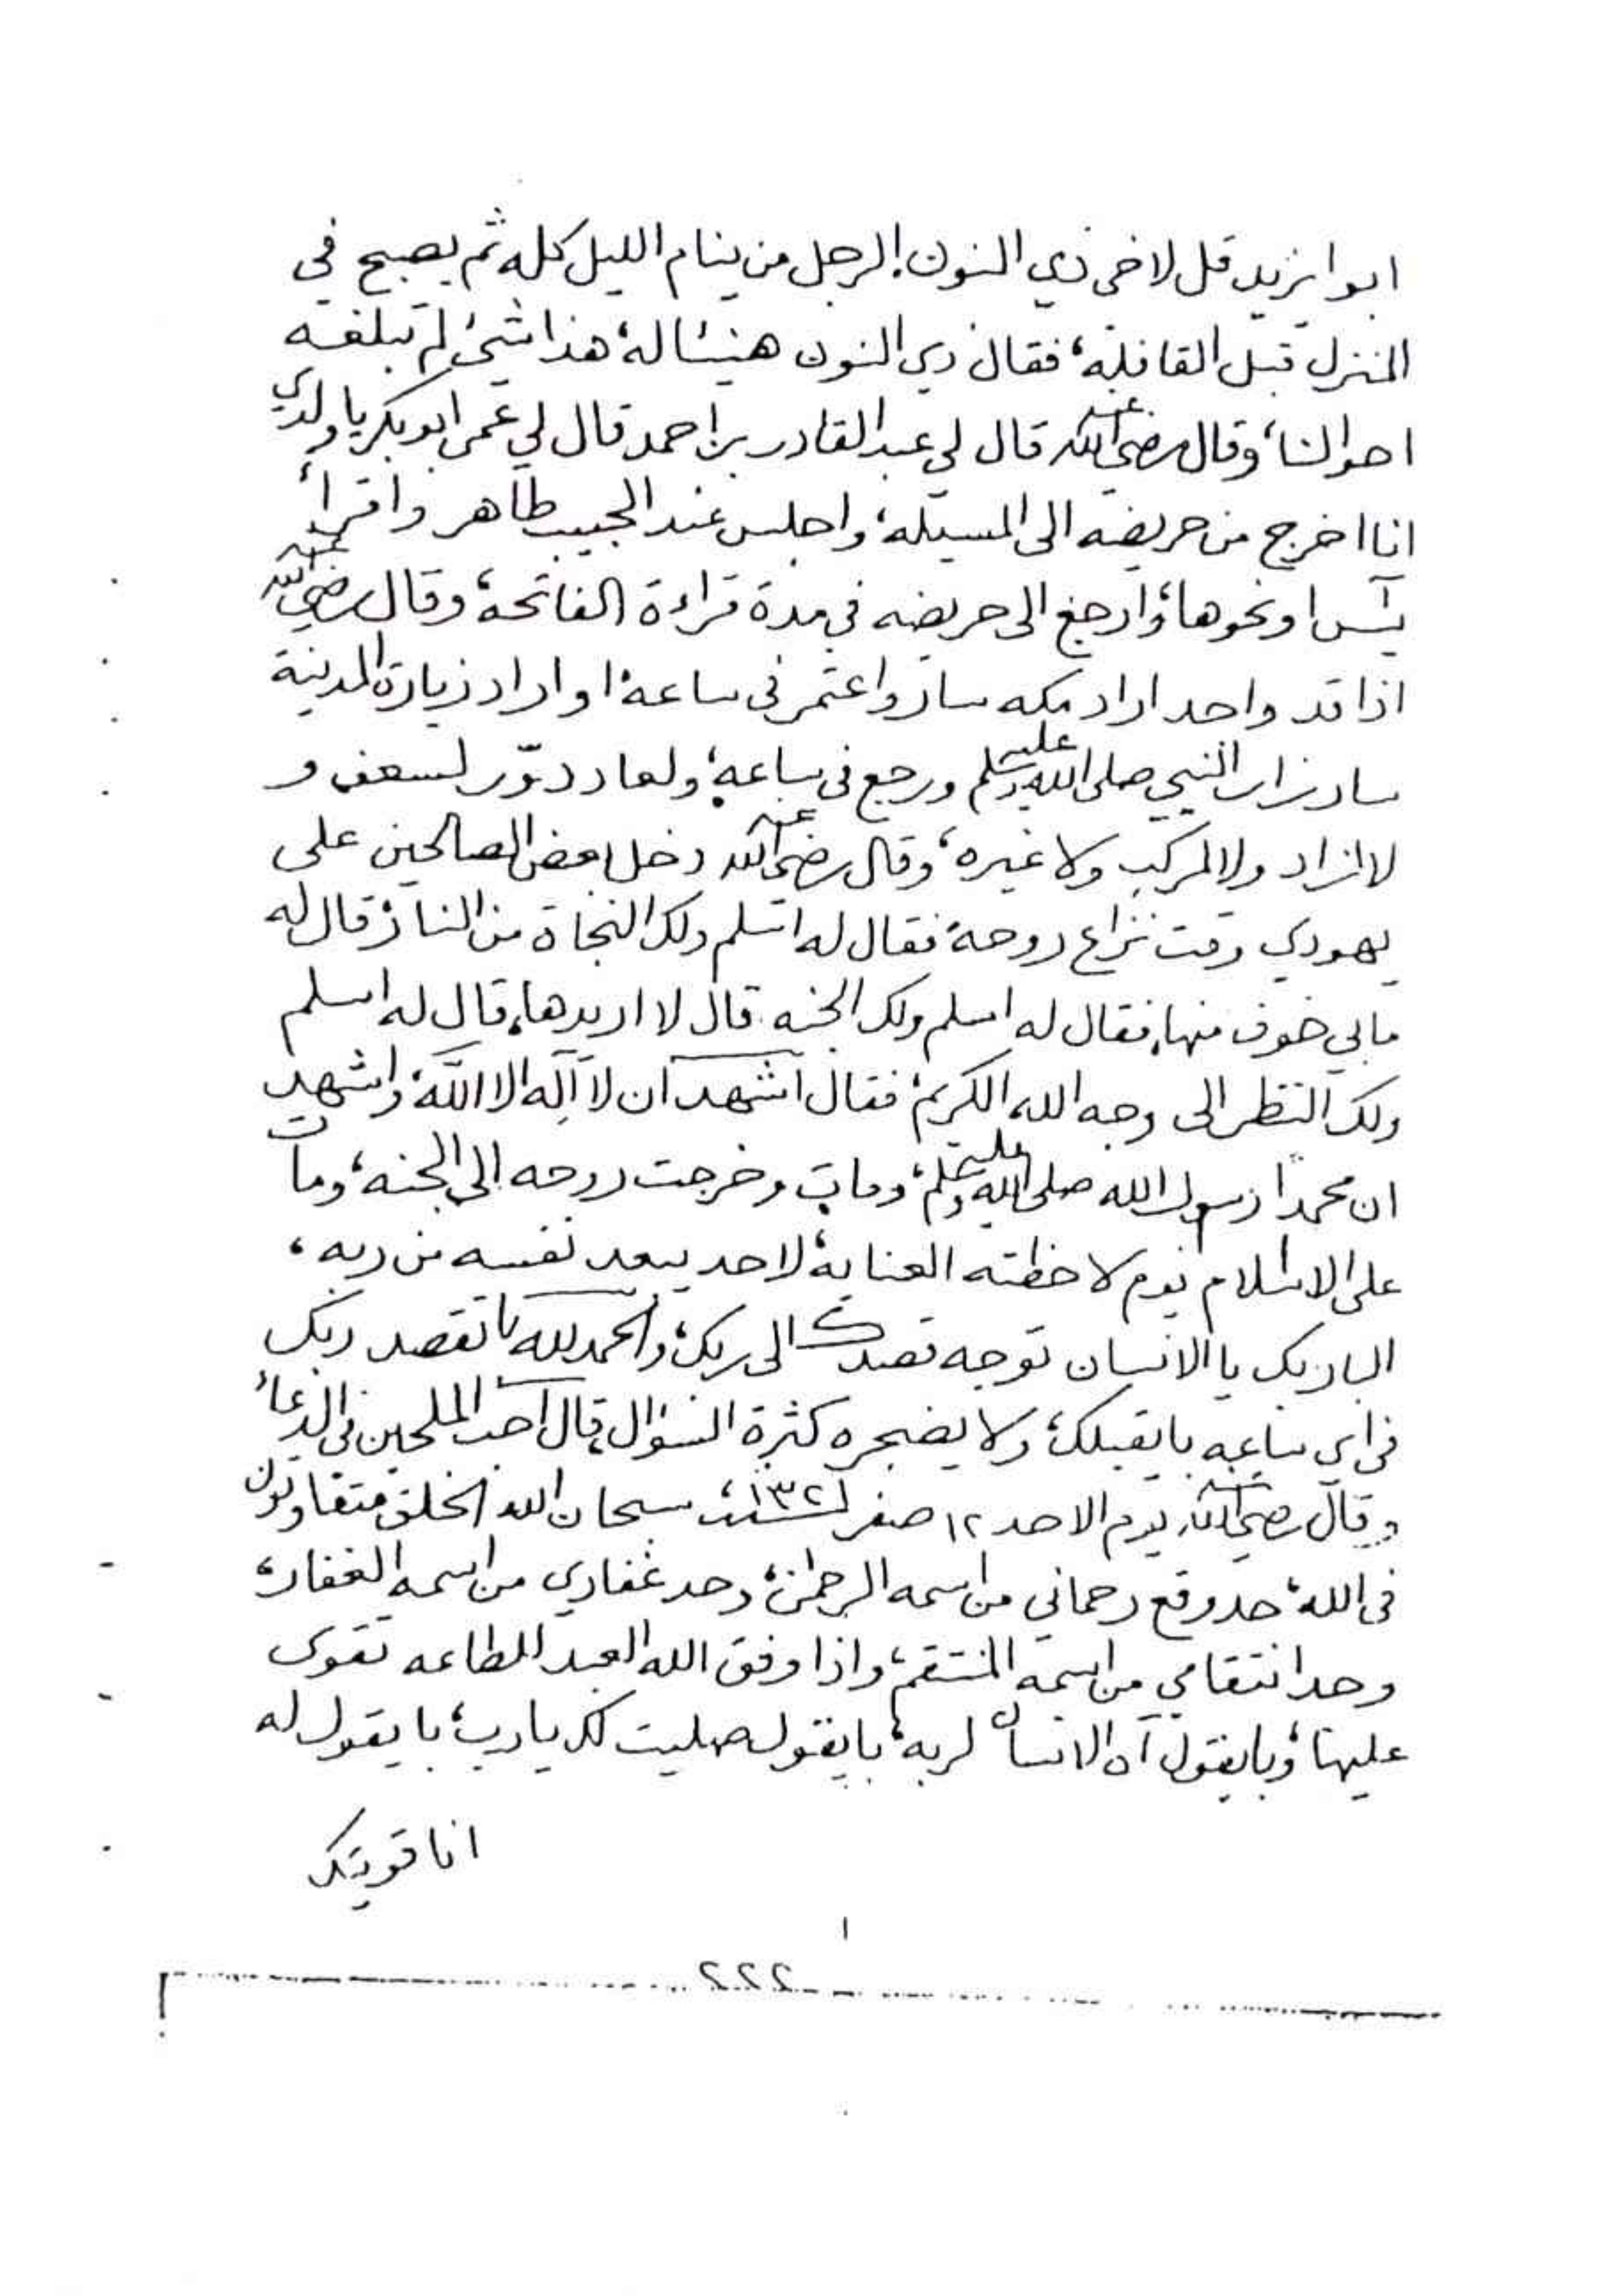 ابو ايزيد قل لاخي ذي النون الرجل من ينام الليل كله ثم يصبح في
المنزل قبل القافلة، فقال ذي النون هنيئاله، هذا شيء لم تبلغه
احوالنا، وقال رضي الله عنه قال لي عبد القادر بن احمد قال لي عمي ابو بكر يا ولدي
انا اخرج من حريضه الى المسيله، واجلس عند الحبيب طاهر واقرأ
يٓس او نحوها، وارجع الى حريضه في مدة قراءة الفاتحة، وقال رضي الله عنه
اذا قد واحد اراد مكه سار واعتمر في ساعة، او اراد زيارة المدينة
سار زار النبي صلى الله عليه وسلم ورجع في ساعة، ولعاد دوّر لسعف و
لا لزاد ولا لمركب ولا غيره، وقال رضي الله عنه دخل بعض الصالحين على
يهودي وقت نزاع روحه فقال له اسلم ولك النجاة من النار، قال له
مابي خوف منها، فقال له اسلم ولك الجنه قال لا اريدها، قال له اسلم
ولك النظر الى وجه الله الكريم، فقال اشهد ان لا آله الا الله، واشهد
ان محمداً رسول الله صلى الله عليه وسلم، ومات وخرجت روحه الى الجنه، ومات
على الاسلام يوم لاحظته العناية، لا حد يبعد نفسه من ربه،
البار بك يا الانسان توجه قصدك الى ربك، والحمد لله با تقصد ربك
في اي ساعه با يقبلك، ولا يضجره كثرة السؤال، قال احب الملحين في الدعاء
وقال رضي الله عنه يوم الاحد ١٢ صفر سنة ١٣٢١، سبحان الله الخلق متفاوتون
في الله، حد وقع رحماني من اسمه الرحمن، وحد غفاري من اسمه الغفار،
وحد انتقامي من اسمه المنتقم، واذا وفق الله العبد للطاعه تقوى
عليها، وبا يقول آه الانسان لربه، با يقول صليت لك يارب، با يقول له
انا قويتك
١
٢٢٢